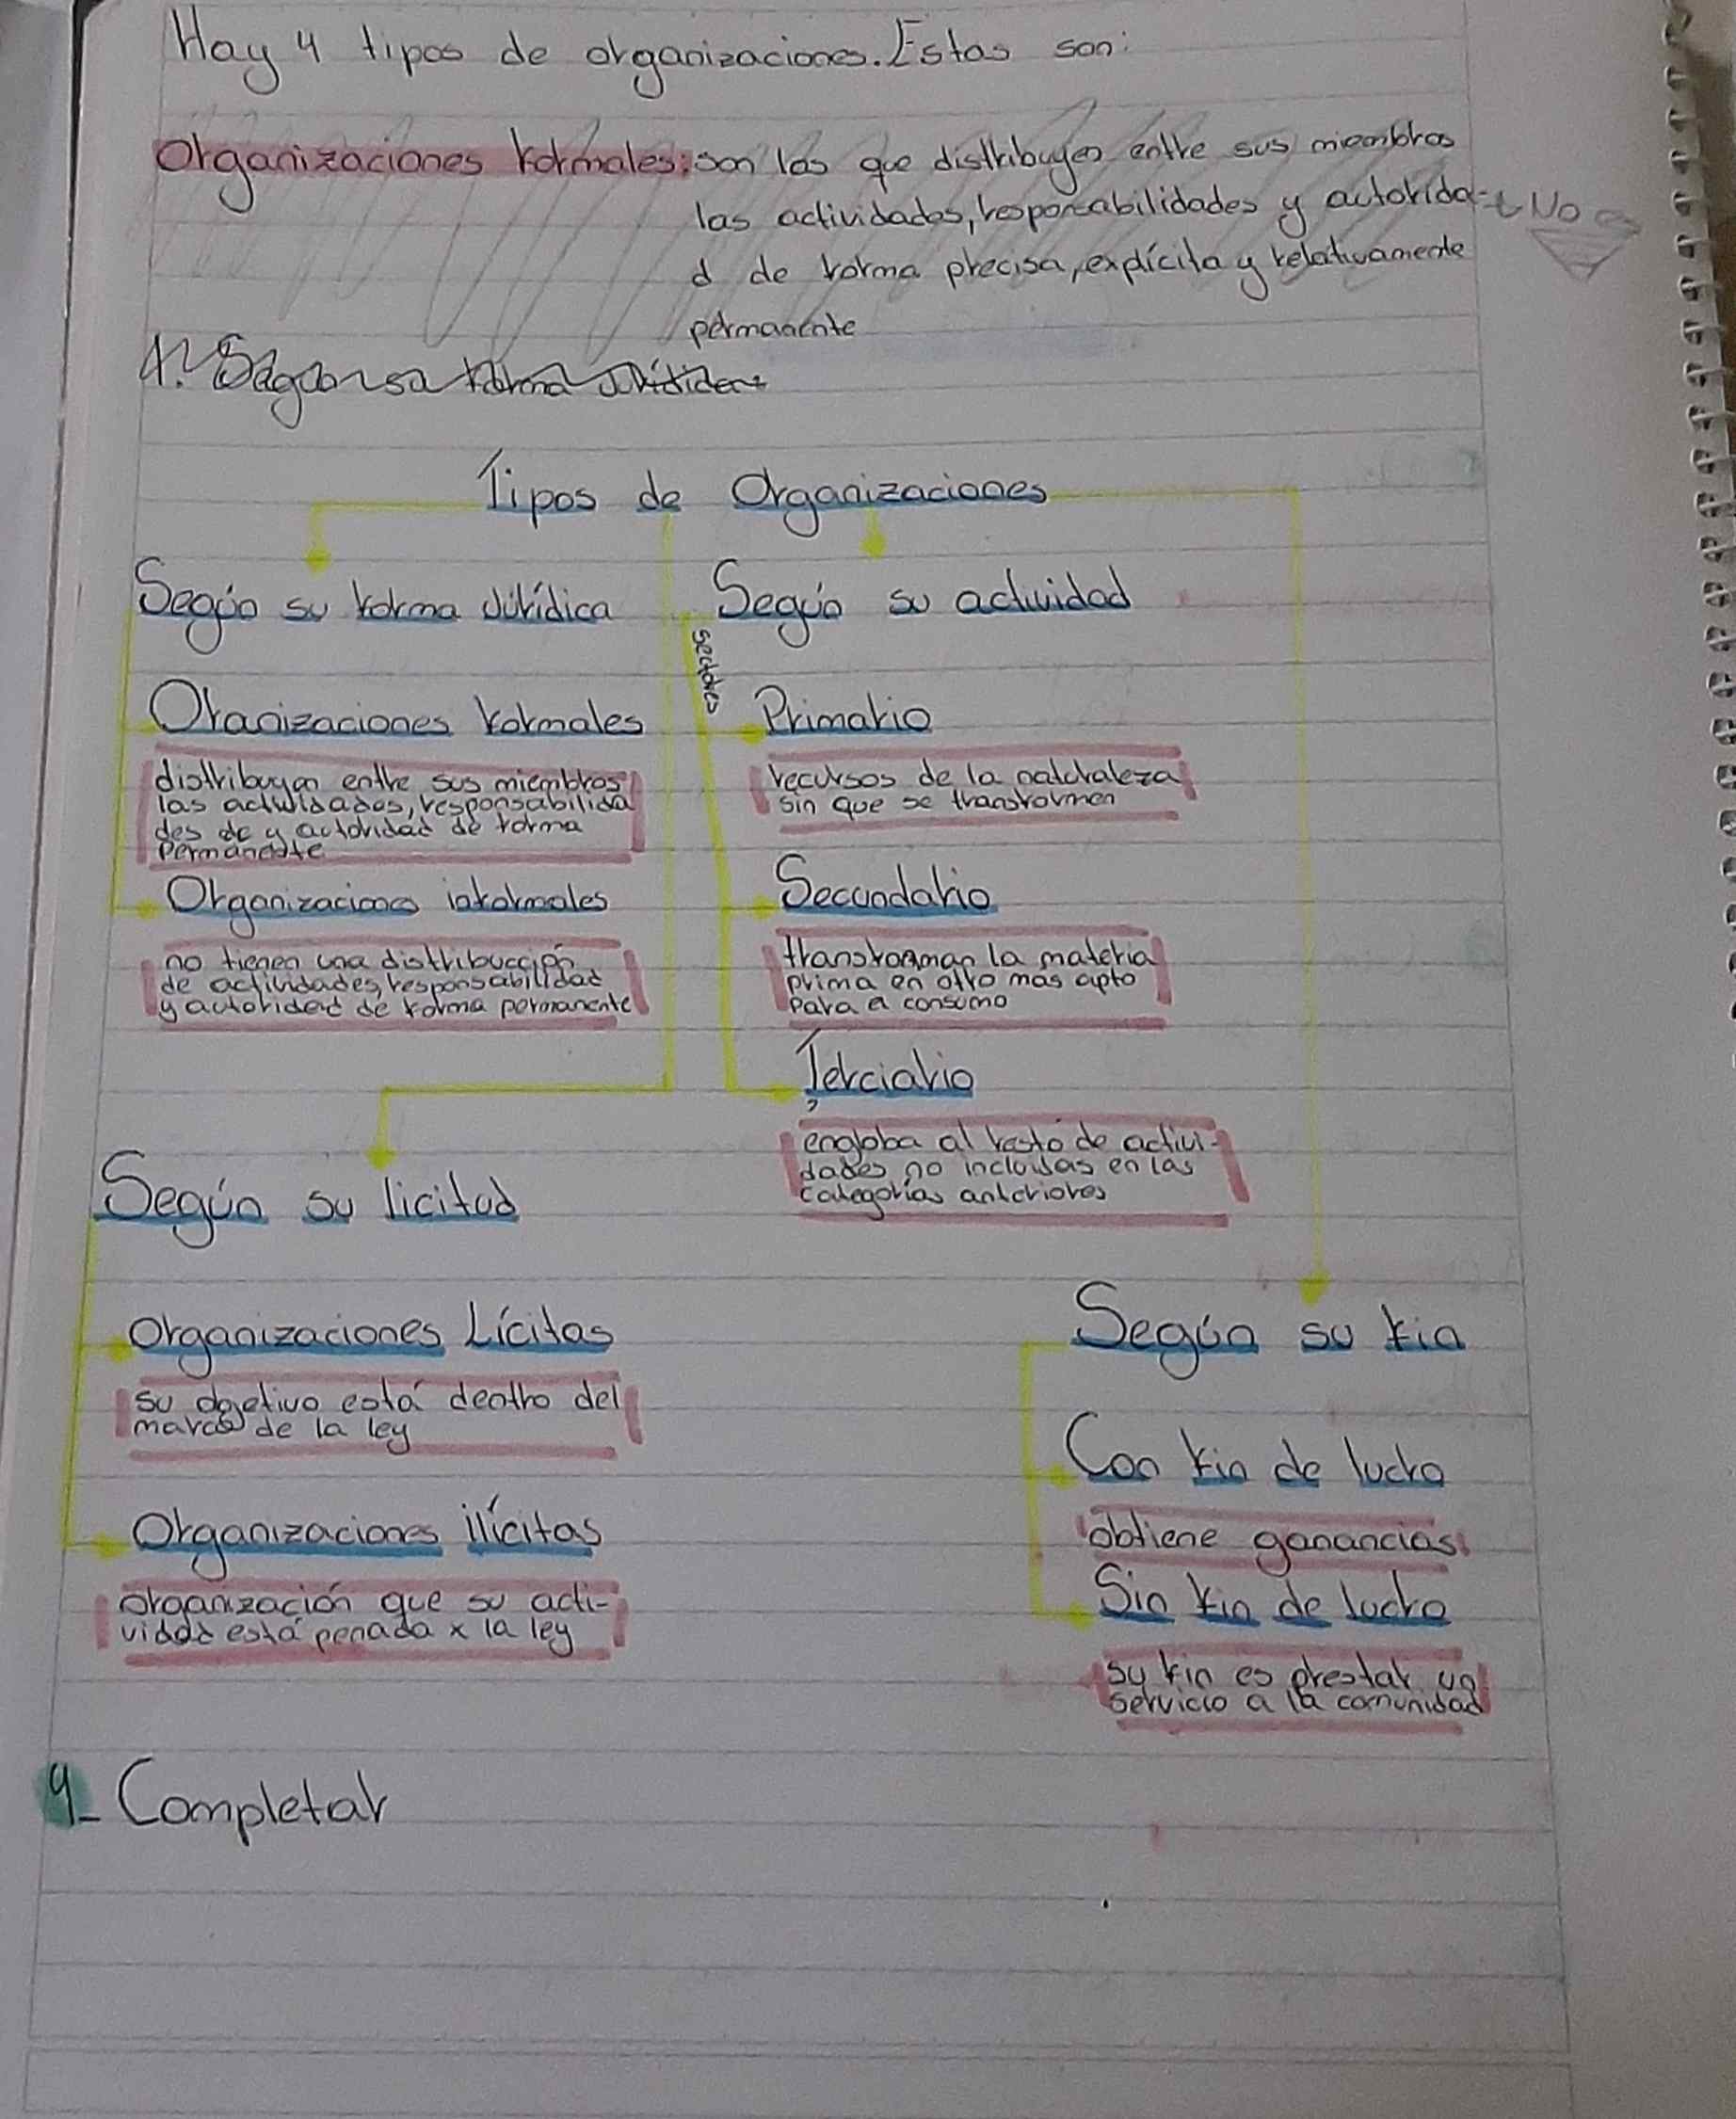 Hay 4 tipos de organizaciones. Estas son:
Organizaciones formales: son las que distribuyen entre sus miembros
las actividades, responsabilidades y autorida-
d de forma precisa, explícita y relativamente
permanente
No
Tipos de Organizaciones
Según su forma Jurídica
Oranizaciones formales
distribuyen entre sus miembros
las actividades, responsabilida
des de y autoridad de forma
permanente
Organizaciones informales
no tienen una distribucción
de actividades, responsabilidad
y autoridad de forma permanente
Según su actividad
sectores
Primario
recursos de la naturaleza
sin que se transformen
Secundario
transforman la materia
prima en otro mas apto
para el consumo
Terciario
engloba al resto de activi-
dades no incluidas en las
categorías anteriores
Según su licitud
Organizaciones Lícitas
su objetivo está dentro del
marco de la ley
Organizaciones ilícitas
organización que su acti-
vidad está penada x la ley
Según su fin
Con fin de lucro
obtiene ganancias
Sin fin de lucro
su fin es prestar un
servicio a la comunidad
4- Completar